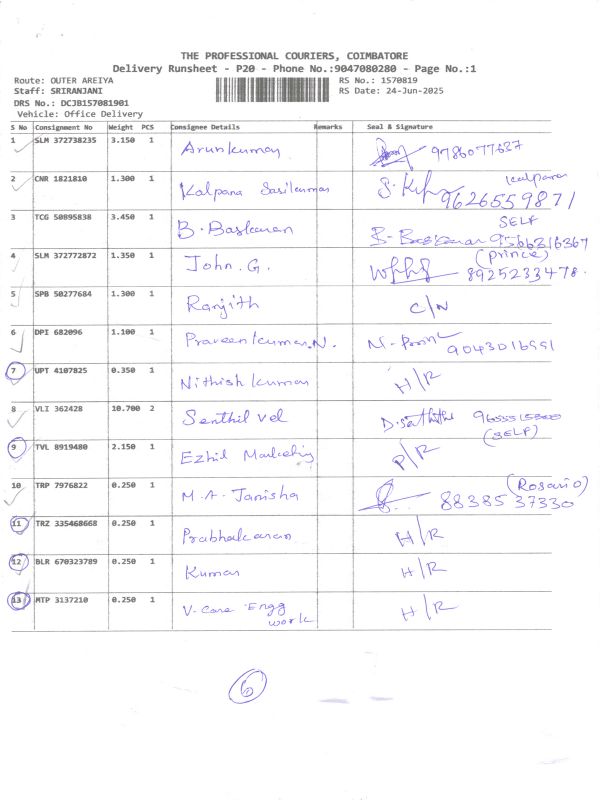 THE PROFESSIONAL COURIERS, COIMBATORE
Delivery Runsheet - P20 - Phone No.:9047080280 - Page No.:1
Route: OUTER AREIYA RS No.: 1570819
Staff: SRIRANJANI RS Date: 24-Jun-2025
DRS No.: DCJB157081901
Vehicle: Office Delivery
S No Consignment No Weight PCS Consignee Details Remarks Seal & Signature
1 SLM 372738235 3.150 1 Arunkumar 9786077687
2 CNR 1821810 1.300 1 Kalpana Sasikumar Kalpana
9626559871
3 TCG 50895838 3.450 1 B. Baskaran SELF
B. Baskaran 9566316367
4 SLM 372772872 1.350 1 John. G. (Prince)
8925233478.
5 SPB 50277684 1.300 1 Ranjith C/N
6 DPI 682096 1.100 1 Praveenkumar. N.
9043016991
7 UPT 4107825 0.350 1 Nithish kumar H/R
8 VLI 362428 10.700 2 Senthil vel
(SELF)
9 TVL 8919480 2.150 1 Ezhil P/R
10 TRP 7976822 0.250 1 M.A. Janisha (Rosario)
88385 37330
11 TRZ 335468668 0.250 1 Prabhakaran H/R
12 BLR 670323789 0.250 1 Kumar H/R
13 MTP 3137210 0.250 1 V-Care Engg H/R
work
6